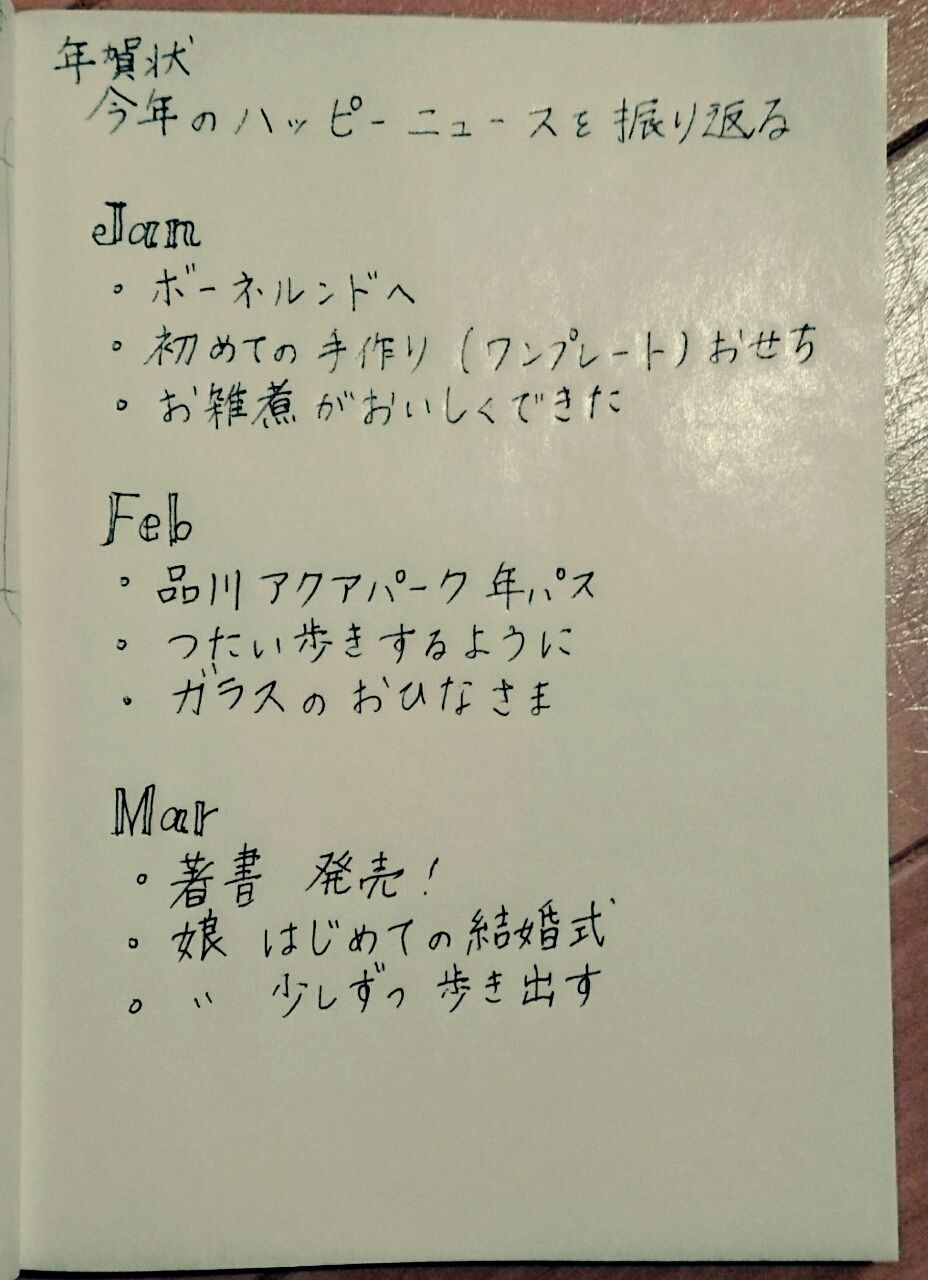 年賀状
今年のハッピーニュースを振り返る
Jan
・ボーネルンドへ
・初めての手作り(ワンプレート)おせち
・お雑煮がおいしくできた
Feb
・品川アクアパーク年パス
・つたい歩きするように
・ガラスのおひなさま
Mar
・著書 発売!
・娘 はじめての結婚式
・〃 少しずつ歩き出す